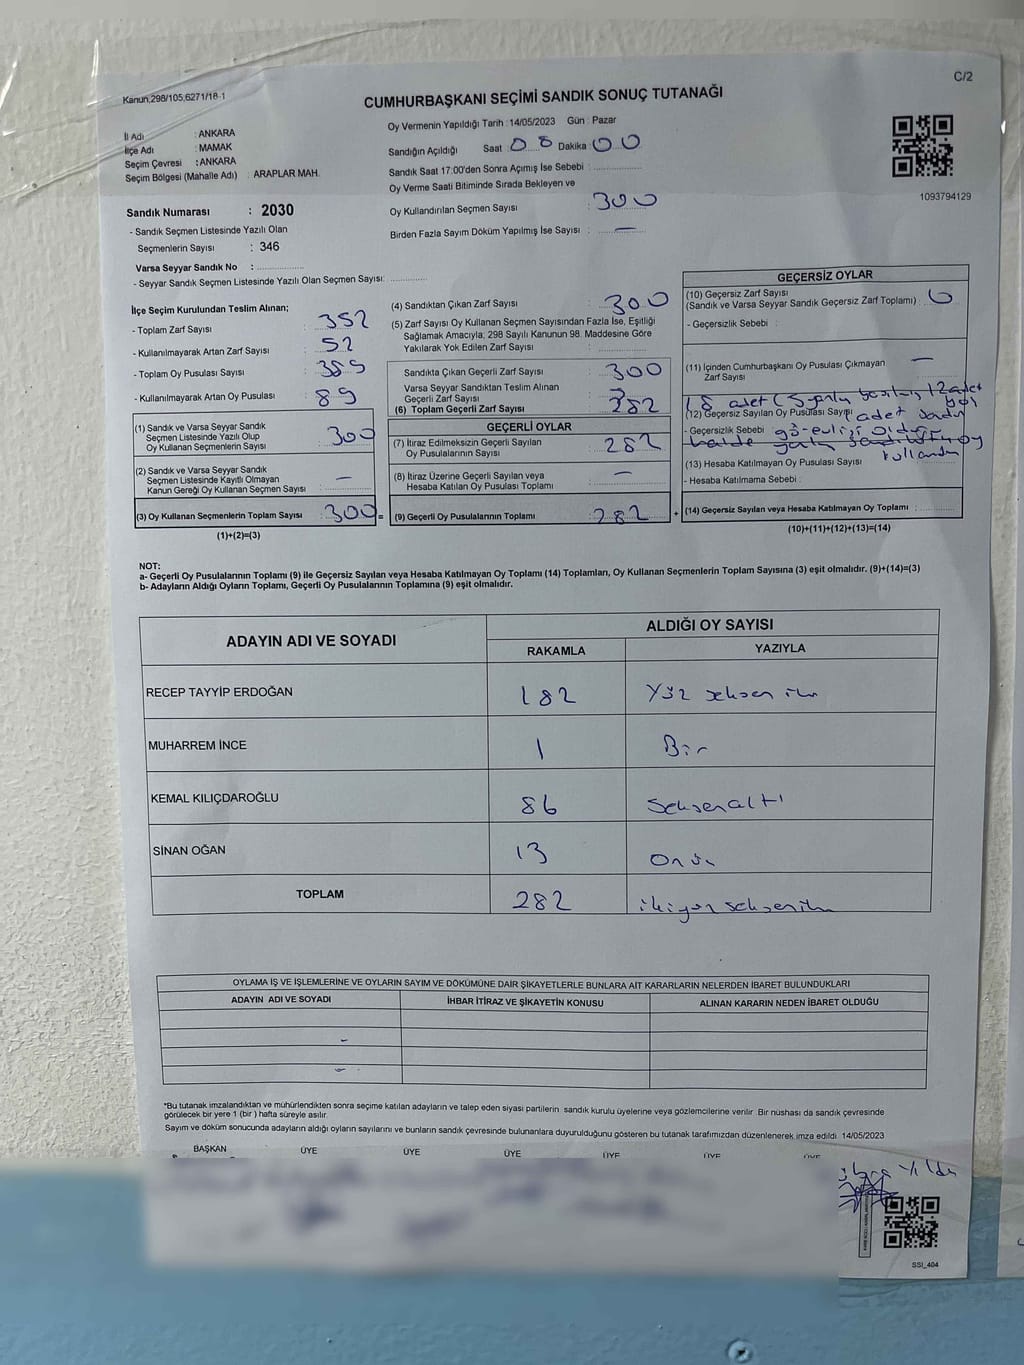 C/2
Kanun,298/105,6271/18-1
CUMHURBAŞKANI SEÇİMİ SANDIK SONUÇ TUTANAĞI
İl Adı : ANKARA
İlçe Adı : MAMAK
Seçim Çevresi : ANKARA
Seçim Bölgesi (Mahalle Adı) : ARAPLAR MAH.
Sandık Numarası : 2030
- Sandık Seçmen Listesinde Yazılı Olan
Seçmenlerin Sayısı : 346
Varsa Seyyar Sandık No :
- Seyyar Sandık Seçmen Listesinde Yazılı Olan Seçmen Sayısı:
Oy Vermenin Yapıldığı Tarih : 14/05/2023 Gün : Pazar
Sandığın Açıldığı Saat : 08 Dakika : 00
Sandık Saat 17:00'den Sonra Açımış İse Sebebi :
Oy Verme Saati Bitiminde Sırada Bekleyen ve
Oy Kullandırılan Seçmen Sayısı : 300
Birden Fazla Sayım Döküm Yapılmış İse Sayısı : —
1093794129
İlçe Seçim Kurulundan Teslim Alınan;
- Toplam Zarf Sayısı : 352
- Kullanılmayarak Artan Zarf Sayısı : 52
- Toplam Oy Pusulası Sayısı : 389
- Kullanılmayarak Artan Oy Pusulası : 89
(1) Sandık ve Varsa Seyyar Sandık
Seçmen Listesinde Yazılı Olup
Oy Kullanan Seçmenlerin Sayısı : 300
(2) Sandık ve Varsa Seyyar Sandık
Seçmen Listesinde Kayıtlı Olmayan
Kanun Gereği Oy Kullanan Seçmen Sayısı : —
(3) Oy Kullanan Seçmenlerin Toplam Sayısı : 300 =
(1)+(2)=(3)
(4) Sandıktan Çıkan Zarf Sayısı : 300
(5) Zarf Sayısı Oy Kullanan Seçmen Sayısından Fazla İse, Eşitliği
Sağlamak Amacıyla; 298 Sayılı Kanunun 98. Maddesine Göre
Yakılarak Yok Edilen Zarf Sayısı :
Sandıkta Çıkan Geçerli Zarf Sayısı : 300
Varsa Seyyar Sandıktan Teslim Alınan
Geçerli Zarf Sayısı :
(6) Toplam Geçerli Zarf Sayısı : 282
GEÇERLİ OYLAR
(7) İtiraz Edilmeksizin Geçerli Sayılan
Oy Pusulalarının Sayısı : 282
(8) İtiraz Üzerine Geçerli Sayılan veya
Hesaba Katılan Oy Pusulası Toplamı : —
(9) Geçerli Oy Pusulalarının Toplamı : 282 +
GEÇERSİZ OYLAR
(10) Geçersiz Zarf Sayısı
(Sandık ve Varsa Seyyar Sandık Geçersiz Zarf Toplamı) :
- Geçersizlik Sebebi :
(11) İçinden Cumhurbaşkanı Oy Pusulası Çıkmayan
Zarf Sayısı : —
18 adet (5 yanlış basılmış 12 adet
boş
(12) Geçersiz Sayılan Oy Pusulası Sayısı : adet
- Geçersizlik Sebebi :
(13) Hesaba Katılmayan Oy Pusulası Sayısı :
- Hesaba Katılmama Sebebi :
(14) Geçersiz Sayılan veya Hesaba Katılmayan Oy Toplamı :
(10)+(11)+(12)+(13)=(14)
NOT:
a- Geçerli Oy Pusulalarının Toplamı (9) ile Geçersiz Sayılan veya Hesaba Katılmayan Oy Toplamı (14) Toplamları, Oy Kullanan Seçmenlerin Toplam Sayısına (3) eşit olmalıdır. (9)+(14)=(3)
b- Adayların Aldığı Oyların Toplamı, Geçerli Oy Pusulalarının Toplamına (9) eşit olmalıdır.
ADAYIN ADI VE SOYADI ALDIĞI OY SAYISI
RAKAMLA YAZIYLA
RECEP TAYYİP ERDOĞAN 182 Yüz seksen iki
MUHARREM İNCE 1 Bir
KEMAL KILIÇDAROĞLU 86 Seksenaltı
SİNAN OĞAN 13 Onüç
TOPLAM 282 ikiyüz seksen iki
OYLAMA İŞ VE İŞLEMLERİNE VE OYLARIN SAYIM VE DÖKÜMÜNE DAİR ŞİKAYETLERLE BUNLARA AİT KARARLARIN NELERDEN İBARET BULUNDUKLARI
ADAYIN ADI VE SOYADI İHBAR İTİRAZ VE ŞİKAYETİN KONUSU ALINAN KARARIN NEDEN İBARET OLDUĞU
*Bu tutanak imzalandıktan ve mühürlendikten sonra seçime katılan adayların ve talep eden siyasi partilerin sandık kurulu üyelerine veya gözlemcilerine verilir. Bir nüshası da sandık çevresinde
görülecek bir yere 1 (bir) hafta süreyle asılır.
Sayım ve döküm sonucunda adayların aldığı oyların sayılarını ve bunların sandık çevresinde bulunanlara duyurulduğunu gösteren bu tutanak tarafımızdan düzenlenerek imza edildi. 14/05/2023
BAŞKAN ÜYE ÜYE ÜYE ÜYE ÜYE ÜYE
SSI_404